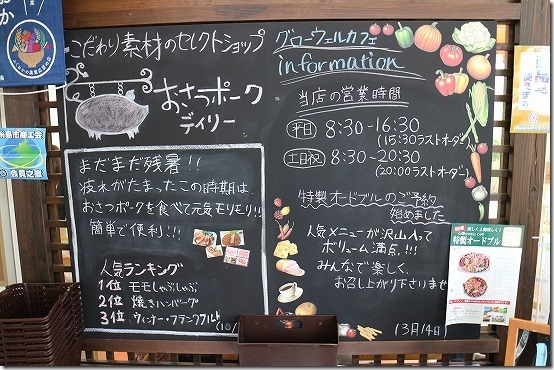 こだわり素材のセレクトショップ
おさつポーク
デイリー
まだまだ残暑!!
疲れがたまったこの時期は
おさつポークを食べて元気モリモリ!!
簡単で便利!!!
人気ランキング
1位 モモしゃぶしゃぶ
2位 焼きハンバーグ
3位 ウィンナー・フランクフルト
グローウェルカフェ
information
当店の営業時間
平日 8:30-16:30
(15:30ラストオーダー)
土日祝 8:30-20:30
(20:00ラストオーダー)
特製オードブルのご予約
始めました
人気メニューが沢山入って
ボリューム満点!!!
みんなで楽しく、
お召し上がり下さいませ
特製オードブル
糸島市商工会
会員之章